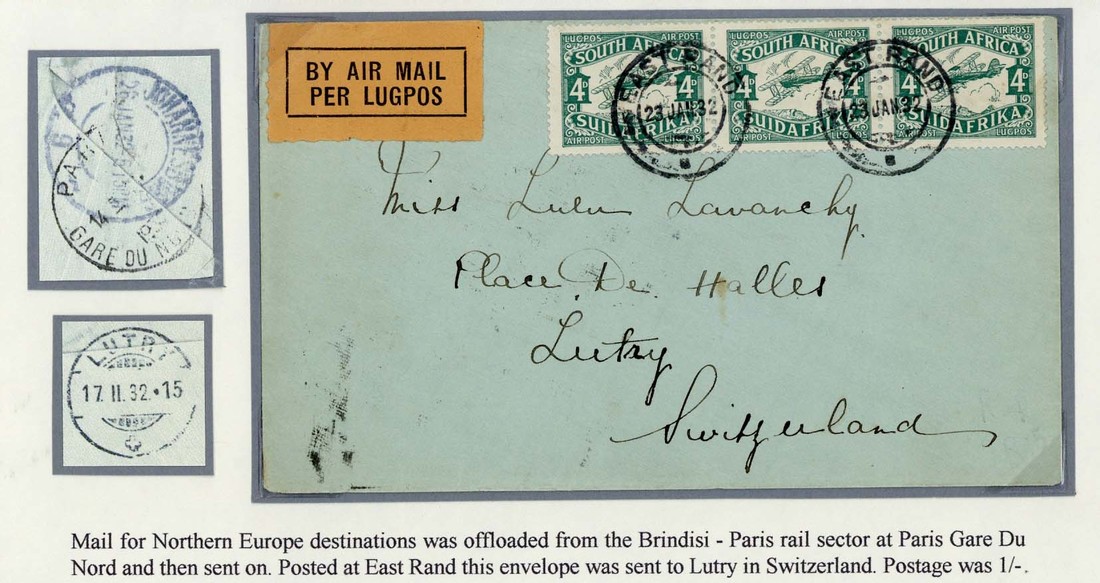 BY AIR MAIL
PER LUGPOS
LUGPOS AIR POST LUGPOS AIR POST LUGPOS AIR POST
SOUTH AFRICA SOUTH AFRICA SOUTH AFRICA
4D 4D 4D 4D 4D 4D
SUIDAFRIKA SUIDAFRIKA SUIDAFRIKA
AIR POST LUGPOS AIR POST LUGPOS AIR POST LUGPOS
EAST RAND
23 JAN 32
EAST RAND
23 JAN 32
Miss Lulu Lavanchy
Place De Halles
Lutry
Switzerland
GARE DU
LUTRY
17. II. 32 • 15
Mail for Northern Europe destinations was offloaded from the Brindisi - Paris rail sector at Paris Gare Du
Nord and then sent on. Posted at East Rand this envelope was sent to Lutry in Switzerland. Postage was 1/-.